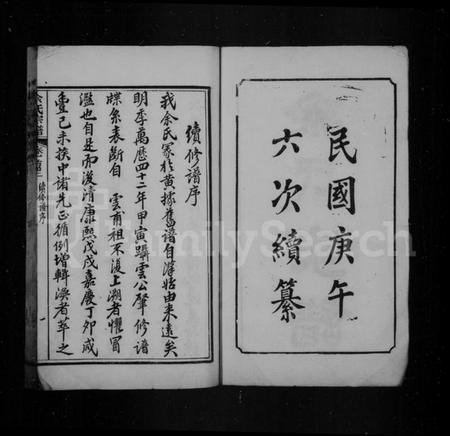 民國庚午
六次續纂
續修譜序
我余氏冢於黄據舊譜自淳恬由來遠矣
明季萬歷四十二年甲寅躋雲公肇修譜
牒系表斷自 雲甫祖不復上溯者懼冒
濫也自是而後清康熙戊戌嘉慶丁卯咸
豐己未族中諸先正循例增輯渙者萃之
余氏宗譜
卷首二
續修譜序
一
FamilySearch